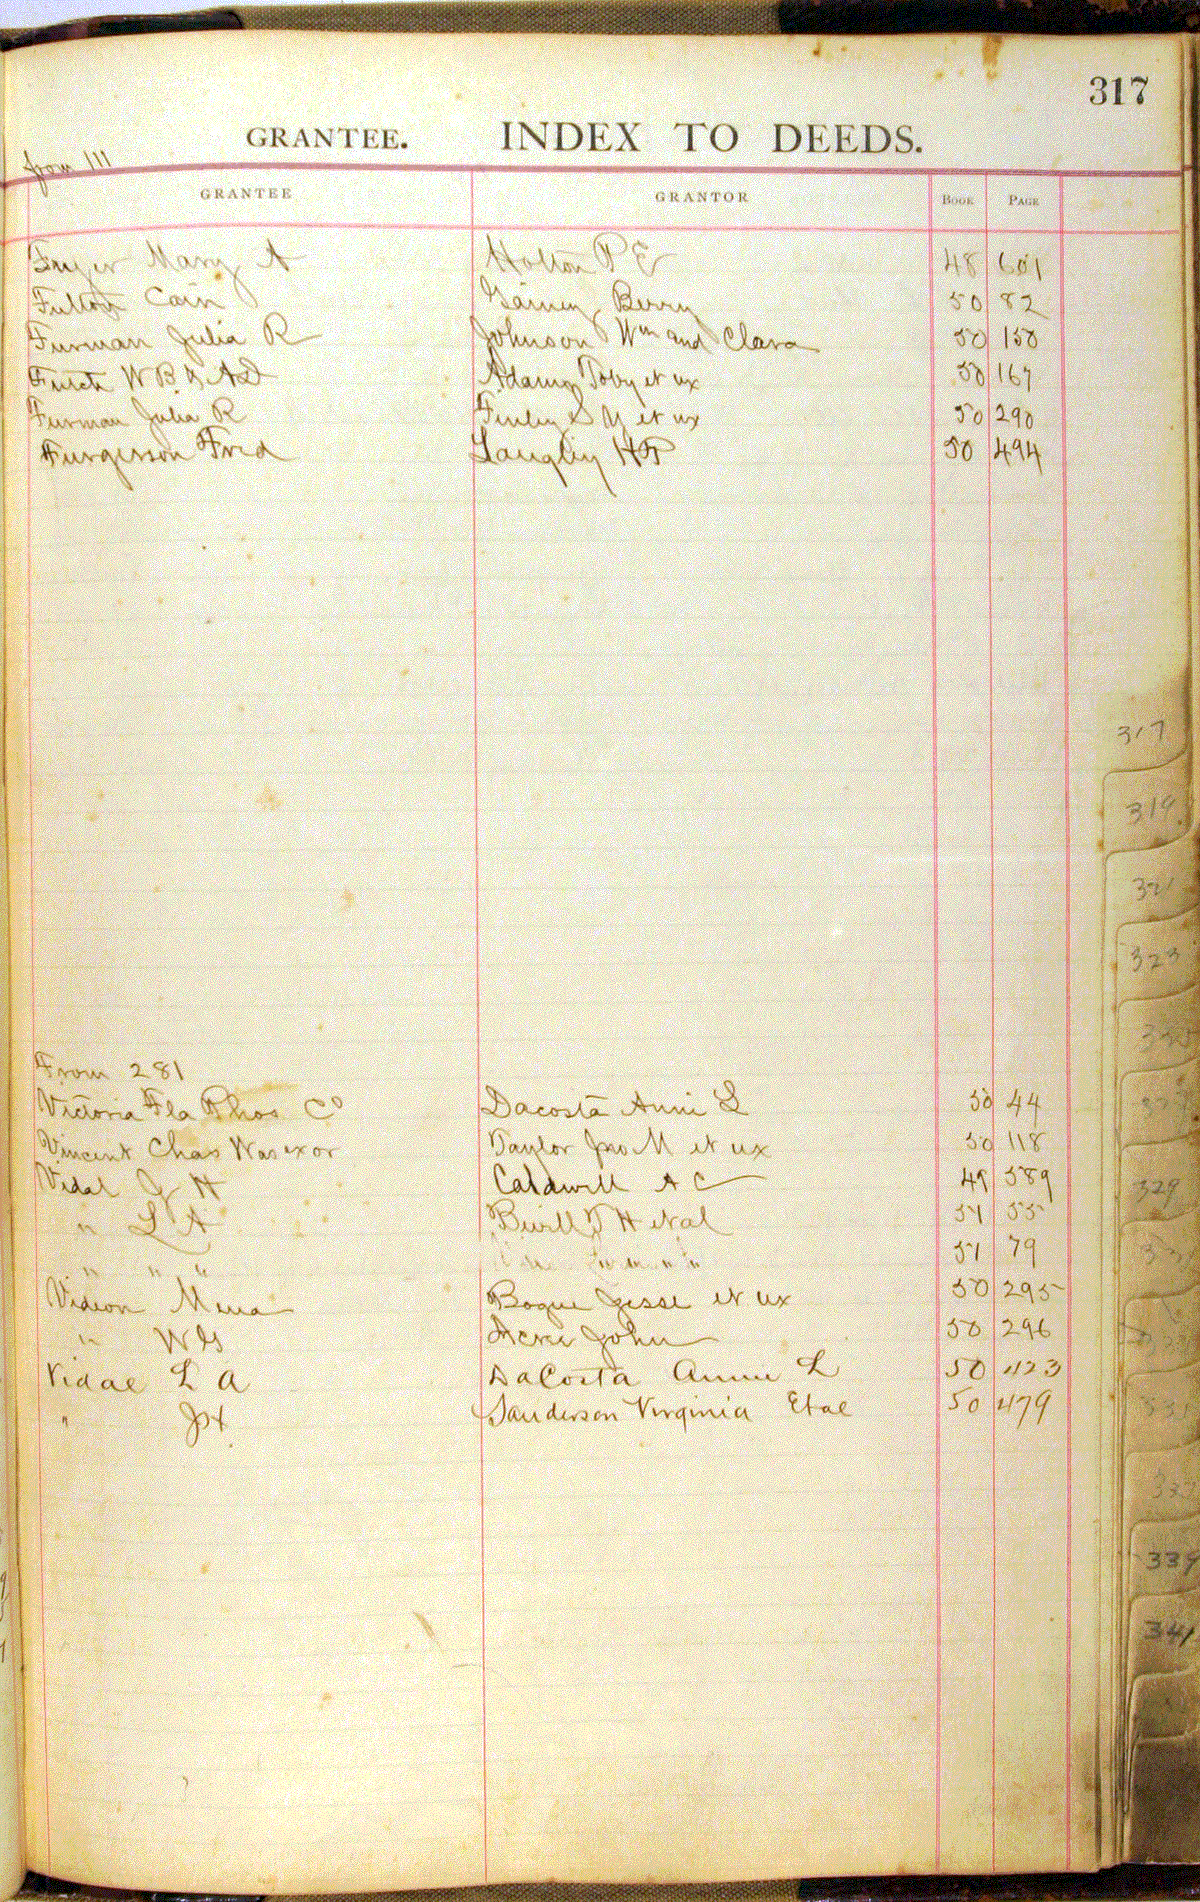 317
GRANTEE. INDEX TO DEEDS.
from 111
GRANTEE GRANTOR BOOK PAGE
Fryer Mary A Holton P E 48 601
Fulton Cain Gainey Berry 50 82
Furman Julia R Johnson Wm and Clara 50 150
Futch W B & A D Adams Toby et ux 50 167
Furman Julia R Finley S M et ux 50 290
Furgerson Fred Langley H P 50 494
317
319
321
323
From 281
Victoria Fla Phos Co Dacosta Anni L 50 44
Vincent Chas W as exor Taylor Jno M et ux 50 118
Vidal J H Caldwell A C 49 589
" L A H et al 51 55
" " " 51 79
329
Videon Mena Bogue Jesse et ux 50 295
" W G Acre John 50 296
Vidal L A DaCosta Annie L 50 423
" Sanderson Virginia Etal 50 479
339
341